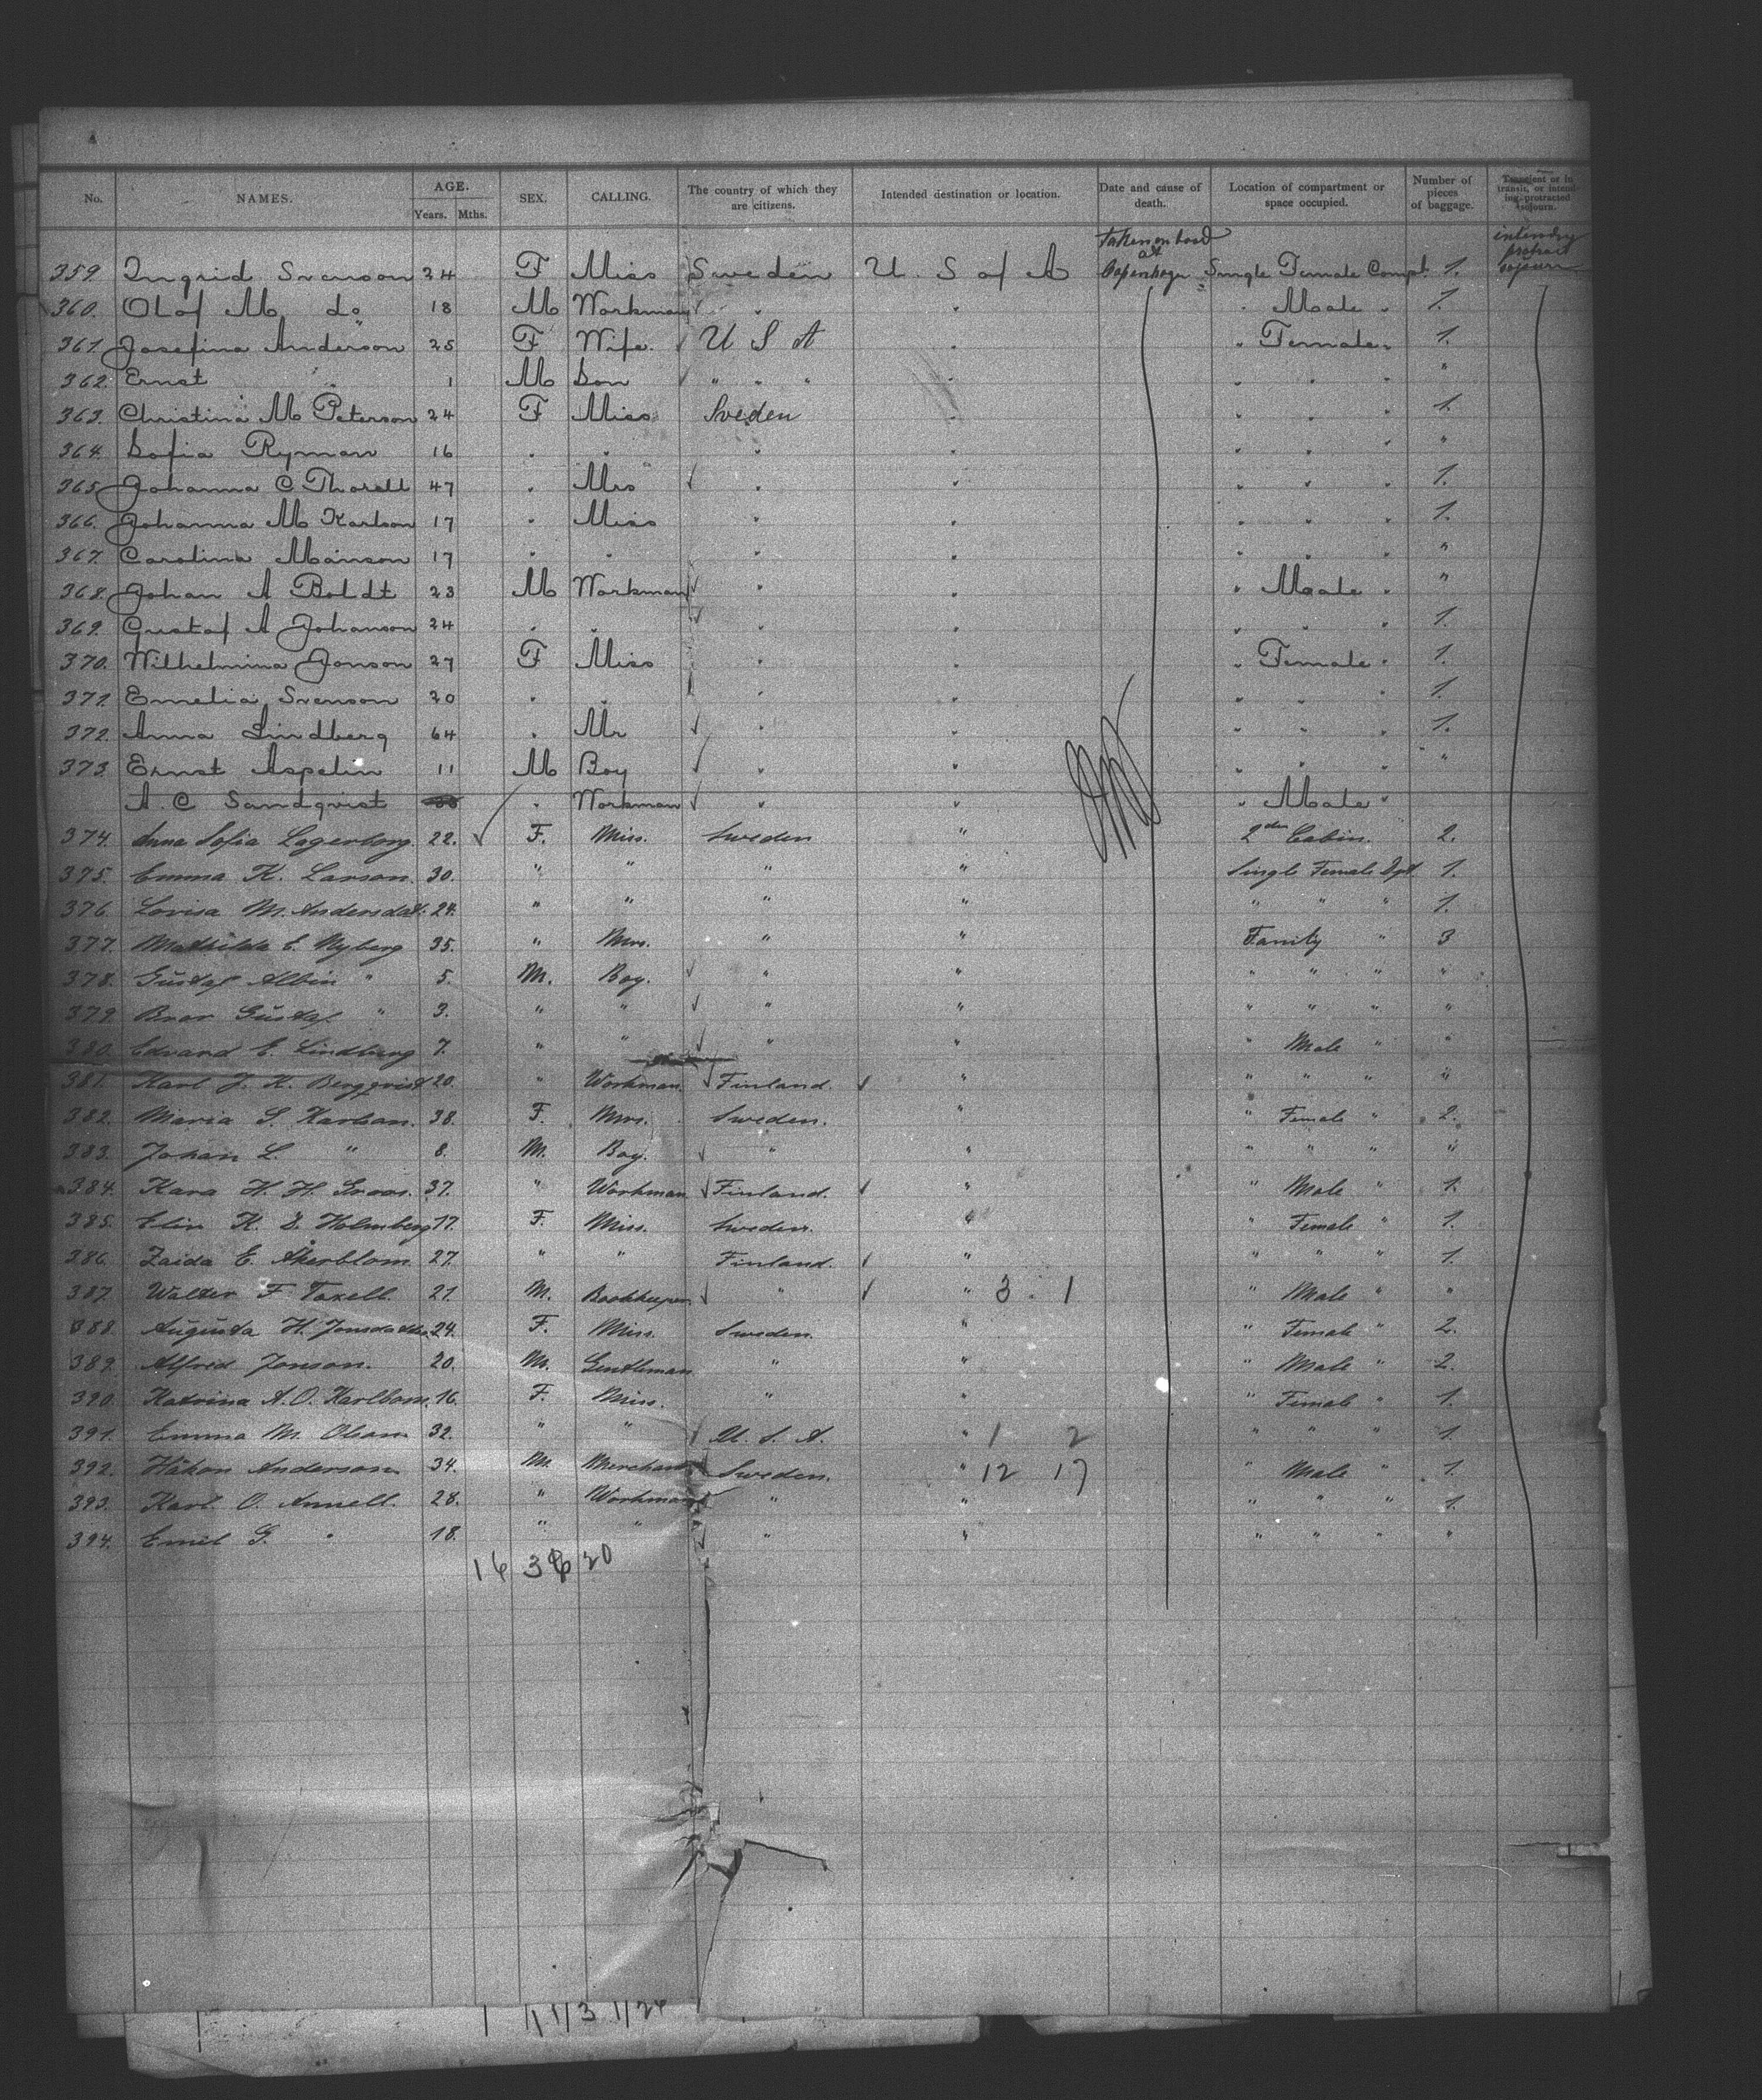 No. NAMES. AGE. Years. Mths. SEX. CALLING. The country of which they are citizens. Intended destination or location. Date and cause of death. Location of compartment or space occupied. Number of pieces of baggage. Transient or in transit, or intending protracted sojourn.
359. Ingrid Svenson 24 F Miss Sweden U. S of A Taken on board at Copenhagen Single Female Compt. 1. intending protract sojourn
360. Olof M. do 18 M Workman " " " Male " 1.
361. Josefina Anderson 25 F Wife. U S A " " Female " 1.
362. Ernst " 1 M Son " " " " " " " "
363. Christina M Peterson 24 F Miss Sveden " " " " 1.
364. Sofia Ryman 16 " " " " " " " "
365. Johanna C Thorell 47 " Mrs " " " " " 1.
366. Johanna M Karlson 17 " Miss " " " " " 1.
367. Carolina Månson 17 " " " " " " " "
368. Johan A Boldt 23 M Workman " " " Male " "
369. Gustaf A Johanson 24 " " " " " " " 1.
370. Wilhelmina Jonson 27 F Miss " " " Female " 1.
371. Emelia Svenson 20 " " " " " " " 1.
372. Anna Lindberg 64 " Mr " " " " " 1.
373. Ernst Aspelin 11 M Boy " " " " " "
A. C Sandqvist " Workman " " " Male "
374. Anna Sofia Lagerborg. 22. F. Miss. Sweden " 2den Cabin. 2.
375. Emma K. Larson. 30. " " " " Single Female Dpt. 1.
376. Lovisa M. Andersdot. 24. " " " " " " " 1.
377. Mathilda E. Nyberg 35. " Mrs. " " Family " 3
378. Gustaf Albin " 5. M. Boy. " " " " " "
379. Bror Gustaf " 3. " " " " " " " "
380. Edvard E. Lindberg 7. " " " " " Male " "
381. Karl J. K. Bergqvist 20. " Workman. Finland. " " " " "
382. Maria S. Karlson. 38. F. Mrs. Sweden. " " Female " 2.
383. Johan L. " 8. M. Boy. " " " " " "
384. 37. " Workman Finland. " " Male " 1.
385. Elin K. S. Holmberg 17. F. Miss. Sweden. " " Female " 1.
386. Zaida E. Åkerblom. 27. " " Finland. " " " " 1.
387. Walter F Taxell. 21. M. Bookkeeper " " 3. 1 " Male " "
388. Augusta H. Jonsdotter 24. F. Miss. Sweden. " " Female " 2.
389. Alfred Jonson. 20. M. Gentleman " " " Male " 2.
390. Katrina A. O. Karlbom. 16. F. Miss. " " " Female " 1.
391. Emma M. Olson 32. " " U. S. A. " 1 2 " " " 1.
392. Håkan Anderson 34. M. Merchant Sweden. " 12 17 " Male " 1.
393. Karl O. Annell. 28. " Workman " " " " " 1.
394. Emil G. " 18. " " " " " " " "
16 36 20